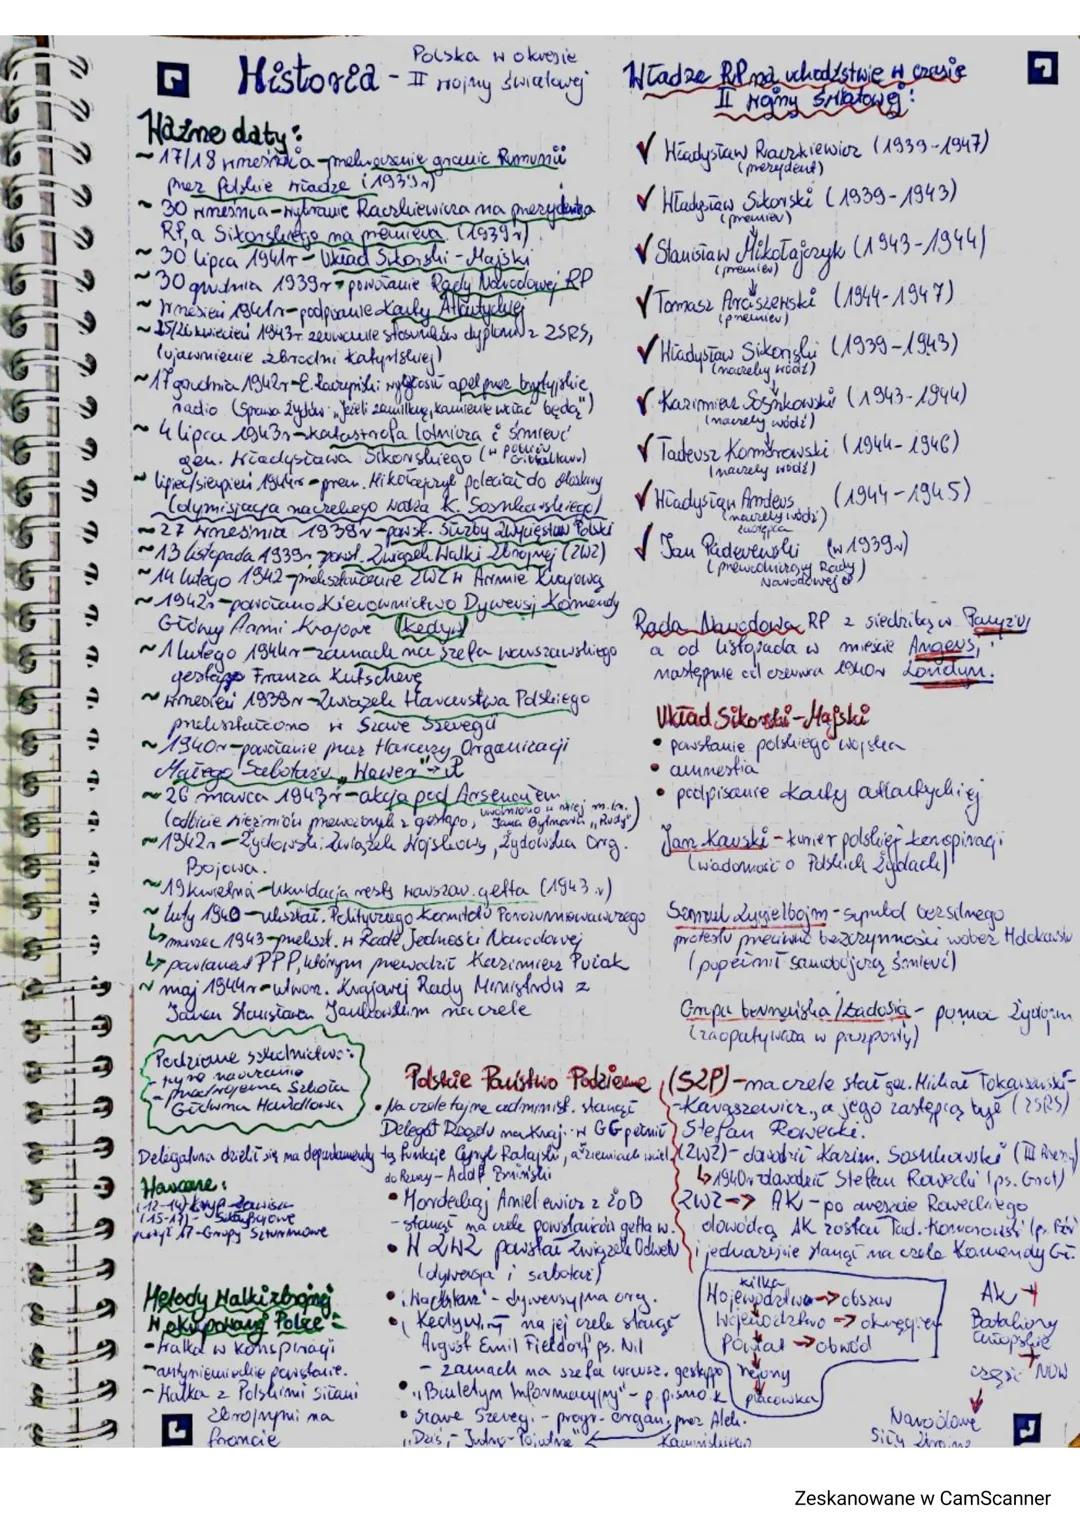 Historia - Polska w okresie
II wojny światowej
Ważne daty:
~ 17/18 września - przekroczenie granic Rumunii
przez Polskie władze (1939r)
~ 30 września - wybranie Raczkiewicza na prezydenta
RP, a Sikorskiego na premiera (1939r)
~ 30 lipca 1941r - Układ Sikorski - Majski
~ 30 grudnia 1939r - powołanie Rady Narodowej RP
~ wrzesień 1941r - podpisanie Karty Atlantyckiej
~ 25/26 kwiecień 1943r zerwanie stosunków dyplom. z ZSRS,
(ujawnienie zbrodni katyńskiej)
~ 17 grudnia 1942r - E. Raczyński wygłosił apel przez brytyjskie
radio (Sprawa Żydów "Jeżeli zamilkną, kamienie wołać będą")
~ 4 lipca 1943r - katastrofa lotnicza i śmierć
gen. Władysława Sikorskiego (w pobliżu Gibraltaru)
~ lipiec/sierpień 1944r - prem. Mikołajczyk poleciał do Moskwy
(dymisjacja naczelnego wodza K. Sosnkowskiego)
~ 27 września 1939r - powst. Służby Zwycięstwu Polski
~ 13 listopada 1939r powst. Związek Walki Zbrojnej (ZWZ)
~ 14 lutego 1942 - przekształcenie ZWZ w Armię Krajową
~ 1942r - powołano Kierownictwo Dywersji Komendy
Głównej Armii Krajowej (Kedyw)
~ 1 lutego 1944r - zamach na szefa warszawskiego
gestapo Franza Kutscherę
~ wrzesień 1939r - Związek Harcerstwa Polskiego
przekształcono w Szare Szeregi
~ 1940r - powołanie przez Harcerzy Organizacji
Małego Sabotażu "Wawer"
~ 26 marca 1943r - akcja pod Arsenałem
(odbicie więźniów przewożonych z gestapo, uwolniono w niej m.in. Jana Bytnara "Rudy")
~ 1942r - Żydowski Związek Wojskowy, Żydowska Org.
Bojowa.
~ 19 kwietnia - likwidacja reszty warszaw. getta (1943r)
~ luty 1940 - ukształ. Politycznego Komitetu Porozumiewawczego
↳ marzec 1943 - przekszt. w Radę Jedności Narodowej
↳ parlament PPP, którym przewodził Kazimierz Pużak
~ maj 1944r - utworz. Krajowej Rady Ministrów z
Janem Stanisławem Jankowskim na czele
Podziemne szkolnictwo:
- tajne nauczanie
Szkoła
Główna Handlowa
Delegatura dzieli się na departamenty
Harcerze:
(12-14) - Zawisza
(15-17) -
17 - Grupy Szturmowe
Metody Walki zbrojnej
w okupowanej Polsce:
- Walka w Konspiracji
- antyniemieckie powstanie.
- Walka z Polskimi siłami
zbrojnymi na
francie
Władze RP na uchodźstwie w czasie
II wojny światowej:
✓ Władysław Raczkiewicz (1939-1947)
(prezydent)
✓ Władysław Sikorski (1939-1943)
(premier)
✓ Stanisław Mikołajczyk (1943-1944)
(premier)
✓ Tomasz Arciszewski (1944-1947)
(premier)
✓ Władysław Sikorski (1939-1943)
(naczelny wódź)
✓ Kazimierz Sosnkowski (1943-1944)
(naczelny wódź)
✓ Tadeusz Komorowski (1944-1946)
(naczelny wódź)
✓ Władysław Anders (1944-1945)
(naczelny wódź)
zastępca
✓ Jan Paderewski (w 1939r)
(przewodniczący Rady
Narodowej)
Rada Narodowa RP z siedzibą w Paryżu,
a od listopada w mieście Angers,
następnie od czerwca 1940r Londyn.
Układ Sikorski - Majski
• powstanie polskiego wojska
• amnestia
• podpisanie Karty atlantyckiej
Jan Karski - kurier polskiej konspiracji
(wiadomość o Polskich Żydach)
Szmul Zygielbojm - symbol bezsilnego
protestu przeciwko bezczynności wobec Holokaustu
(popełnił samobójczą śmierć)
Grupa berneńska / Ładosia - pomoc Żydom
(zaopatywała w paszporty)
Polskie Państwo Podziemne
• Na czele tajne administ. stanął
Delegat Rządu na Kraj. w GG pełnił
tą funkcję Cyryl Ratajski, a ziemiach wciel.
do Rzeszy - Adolf Bniński
• Mordechaj Anielewicz z ŻOB
- stanął na czele powstańców getta w.
• W ZWZ powstał Związek Odwetu
(dywersja i sabotaż)
• "Wachlarz" - dywersyjna org.
• Kedyw na jej czele stanął
August Emil Fieldorf ps. Nil
- zamach na szefa warsz. gestapo
• "Biuletyn Informacyjny" - p. pismo
• Szare Szeregi - progr. organ. przez Alek.
"Dziś - Jutro - Pojutrze" Kamińskiego
(SZP) - na czele stał gen. Michał Tokarzewski-
-Karaszewicz, a jego zastępcą był (ZSRS)
Stefan Rowecki.
(ZWZ) - dowódź Kazim. Sosnkowski (III Rzeszy)
↳ 1940r dowodził Stefan Rowecki (ps. Grot)
ZWZ → AK - po areszcie Roweckiego
dowódcą AK został Tad. Komorowski (p. Bór)
i jednocześnie stanął na czele Komendy Gł.
kilka
Województwo → obszar
Województwo → okręgiem
Powiat → obwód
rejony
placówka
AK +
Bataliony
Chłopskie
+
część NOW
Narodowe
Siły Zbrojne
Zeskanowane w CamScanner